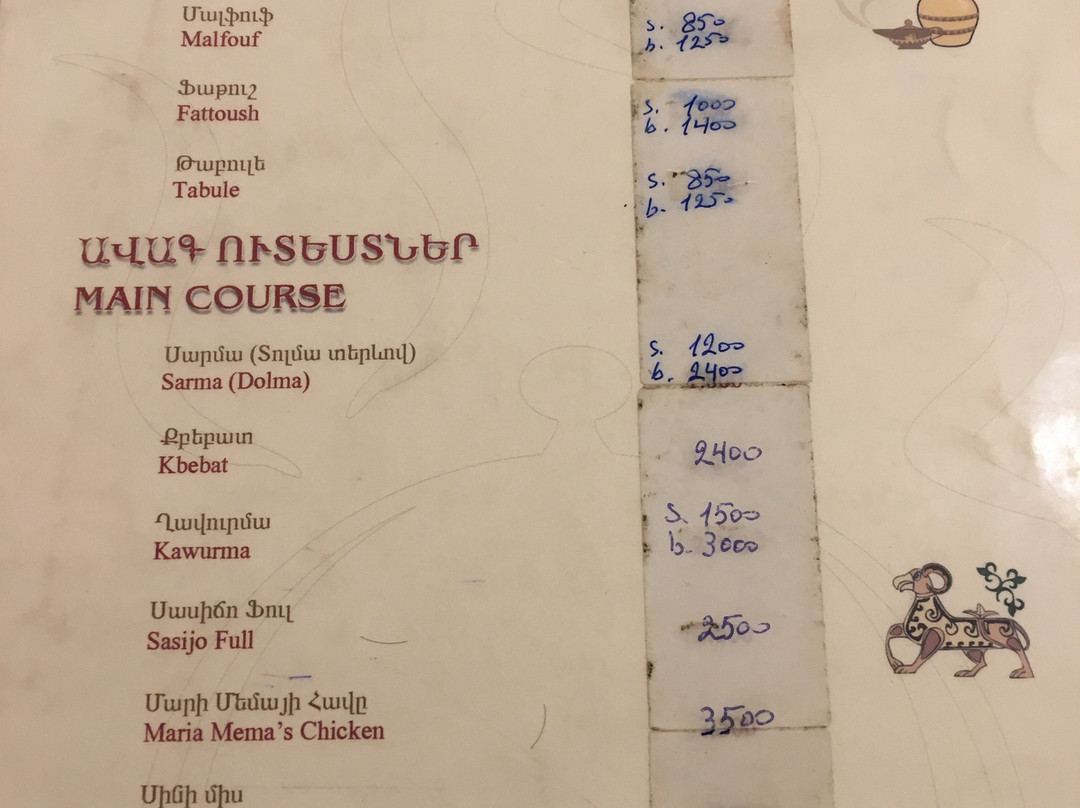 Մալֆուֆ
Malfouf
s. 850
b. 1250
Ֆաթուշ
Fattoush
s. 1000
b. 1400
Թաբուլե
Tabule
s. 850
b. 1250
ԱՎԱԳ ՈՒՏԵՍՏՆԵՐ
MAIN COURSE
Սարմա (Տոլմա տերևով)
Sarma (Dolma)
s. 1200
b. 2400
Քբեբատ
Kbebat
2400
Ղավուրմա
Kawurma
s. 1500
b. 3000
Սասիճո Ֆուլ
Sasijo Full
2500
Մարի Մեմայի Հավը
Maria Mema’s Chicken
3500
Սինի միս